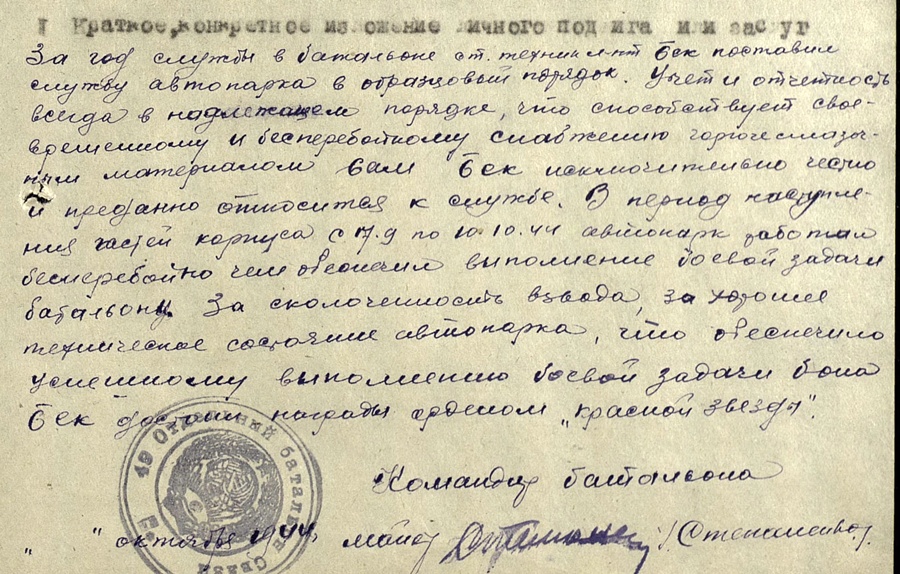 I Краткое, конкретное изложение личного подвига или заслуг
За год службы в батальоне ст. техник л-нт Бек поставил
службу автопарка в образцовый порядок. Учет и отчетность
всегда в надлежащем порядке, что способствует свое-
временному и бесперебойному снабжению горючесмазоч-
ным материалом Сам Бек исключительно честно
и преданно относится к службе. В период наступле-
ния частей корпуса с 17.9 по 10.10.44 автопарк работал
бесперебойно чем обеспечил выполнение боевой задачи
батальону. За сколоченность взвода, за хорошее
техническое состояние автопарка, что обеспечило
успешному выполнению боевой задачи б-она
Бек достоин награды орденом "Красной Звезды".
Командир батальона
" " октября 1944 майор /Степаненко/
49 Отдельный батальон Связи